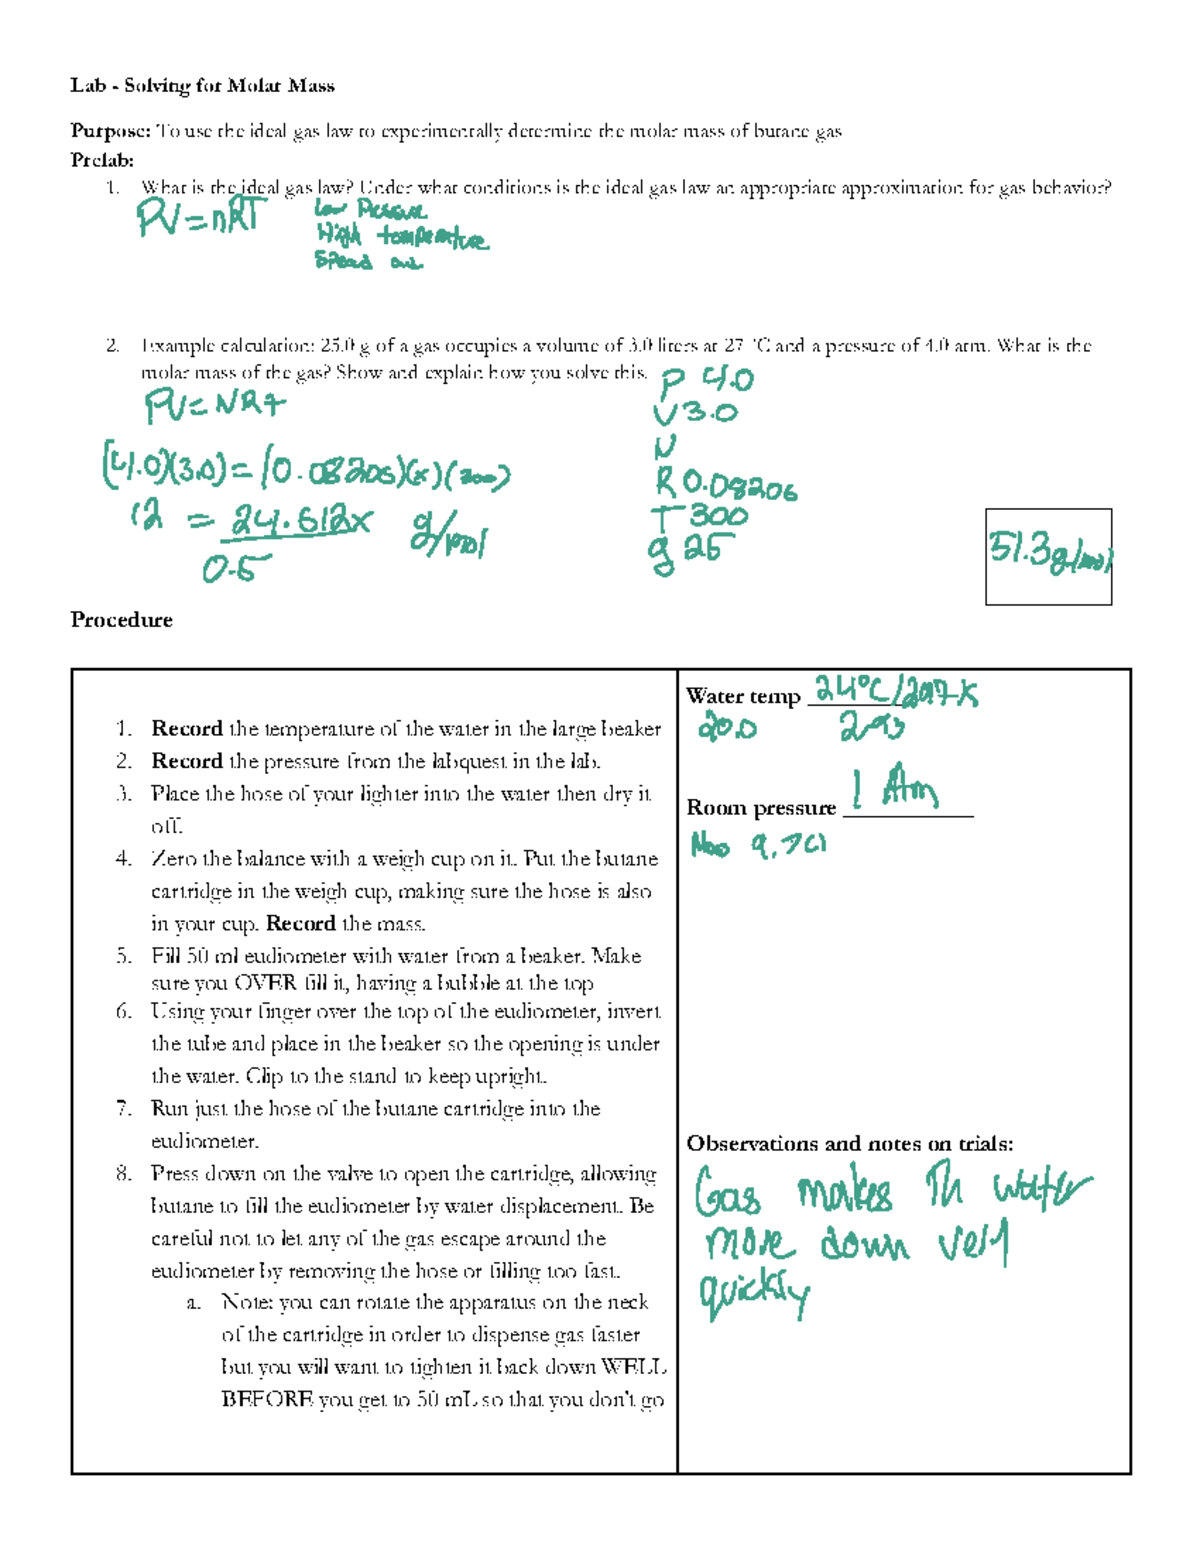 Lab - Solving for Molar Mass
Purpose: To use the ideal gas law to experimentally determine the molar mass of butane gas
Prelab:
1. What is the ideal gas law? Under what conditions is the ideal gas law an appropriate approximation for gas behavior?
PV=nRT
Low Pressure
High temperature
Spread out
2. Example calculation: 25.0 g of a gas occupies a volume of 3.0 liters at 27 °C and a pressure of 4.0 atm. What is the
molar mass of the gas? Show and explain how you solve this.
PV=NRT
(4.0)(3.0)=(0.08206)(x)(300)
12 = 24.612x g/mol
0.5
P 4.0
V 3.0
N
R 0.08206
T 300
g 25
51.3g/mol
Procedure
1. Record the temperature of the water in the large beaker
2. Record the pressure from the labquest in the lab.
3. Place the hose of your lighter into the water then dry it
off.
4. Zero the balance with a weigh cup on it. Put the butane
cartridge in the weigh cup, making sure the hose is also
in your cup. Record the mass.
5. Fill 50 ml eudiometer with water from a beaker. Make
sure you OVER fill it, having a bubble at the top
6. Using your finger over the top of the eudiometer, invert
the tube and place in the beaker so the opening is under
the water. Clip to the stand to keep upright.
7. Run just the hose of the butane cartridge into the
eudiometer.
8. Press down on the valve to open the cartridge, allowing
butane to fill the eudiometer by water displacement. Be
careful not to let any of the gas escape around the
eudiometer by removing the hose or filling too fast.
a. Note: you can rotate the apparatus on the neck
of the cartridge in order to dispense gas faster
but you will want to tighten it back down WELL
BEFORE you get to 50 mL so that you don't go
Water temp 24°C/297K
20.0 293
Room pressure 1 Atm
Observations and notes on trials:
Gas makes Th water
move down very
quickly